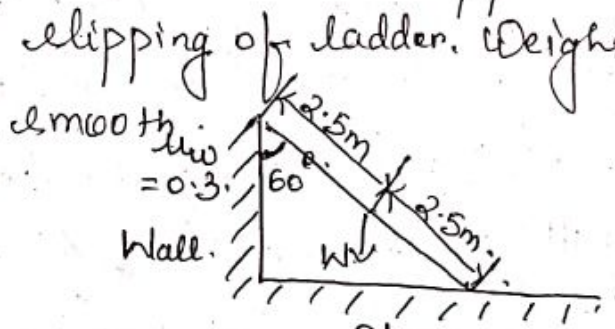 slipping of ladder. Weigh
smooth
μw
= 0.3.
60°
2.5m
2.5m.
Wall.
W